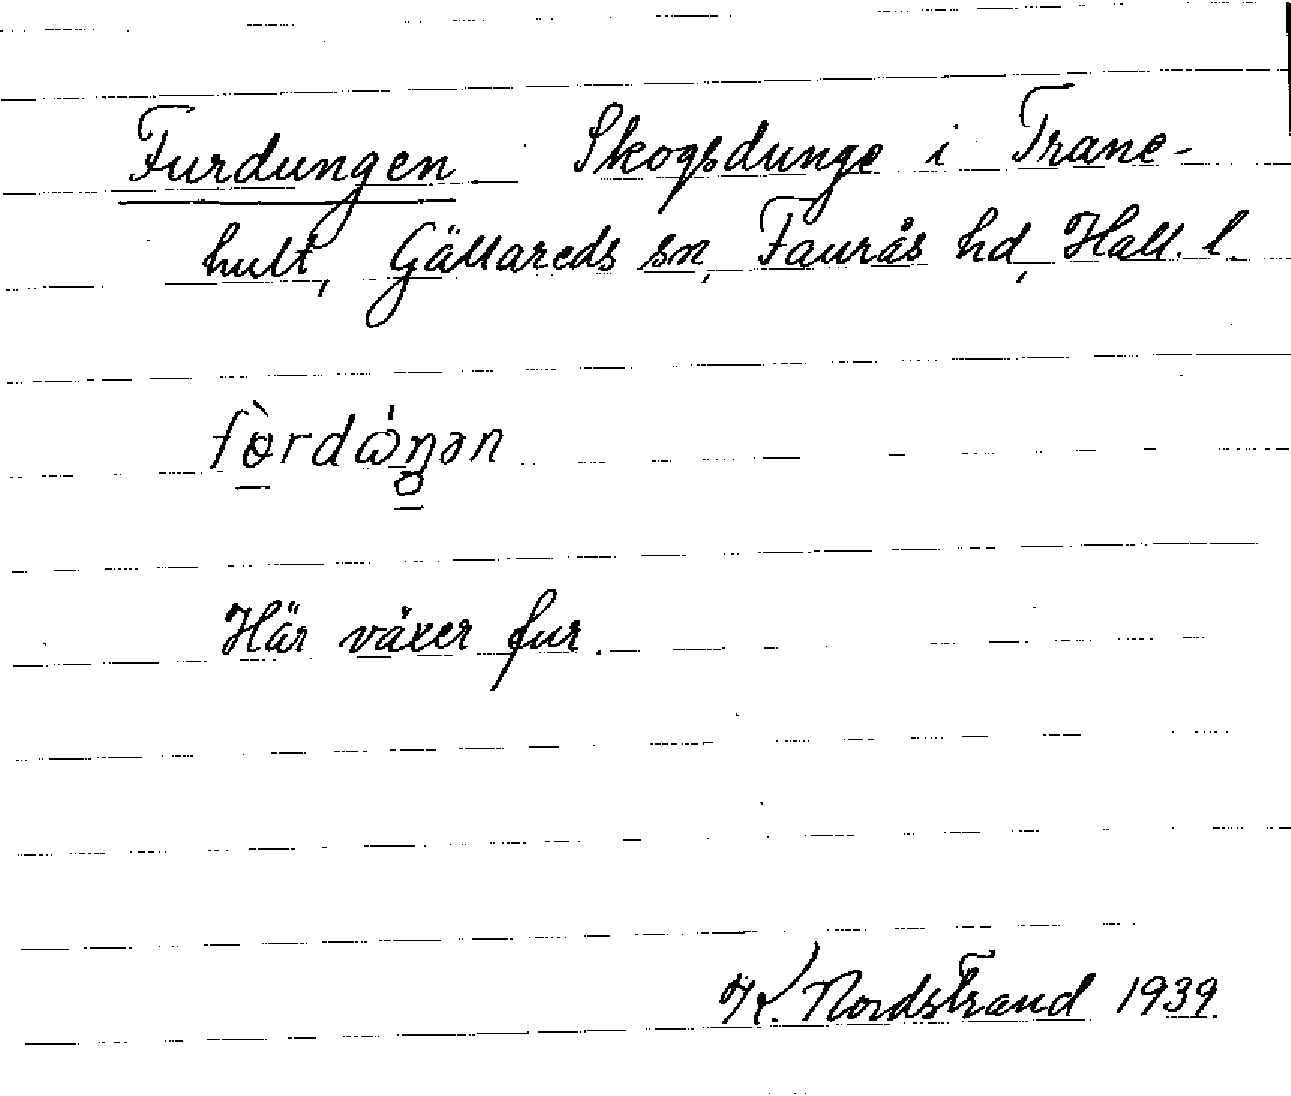 Furdungen Skogsdunge i Trane-
hult, Gällareds sn, Faurås hd, Hall. l.
fɵ̀rdώŋən
Här växer fur.
K. Nordstrand 1939